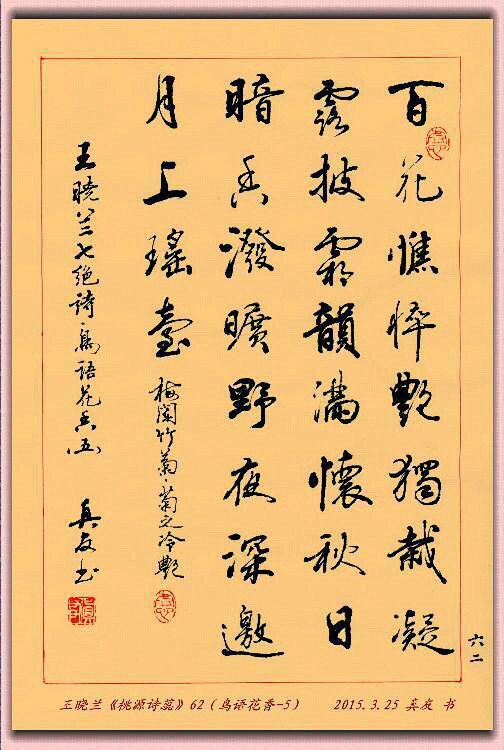 百花憔悴艷獨栽凝
露披霜韻滿懷秋日
暗香潑曠野夜深邀
月上瑤臺
梅蘭竹菊·菊之冷艷
王曉兰七絕詩·鳥語花香(五) 真友书
六二
王晓兰《桃源诗蕊》62（鸟语花香-5） 2015.3.25 真友 书